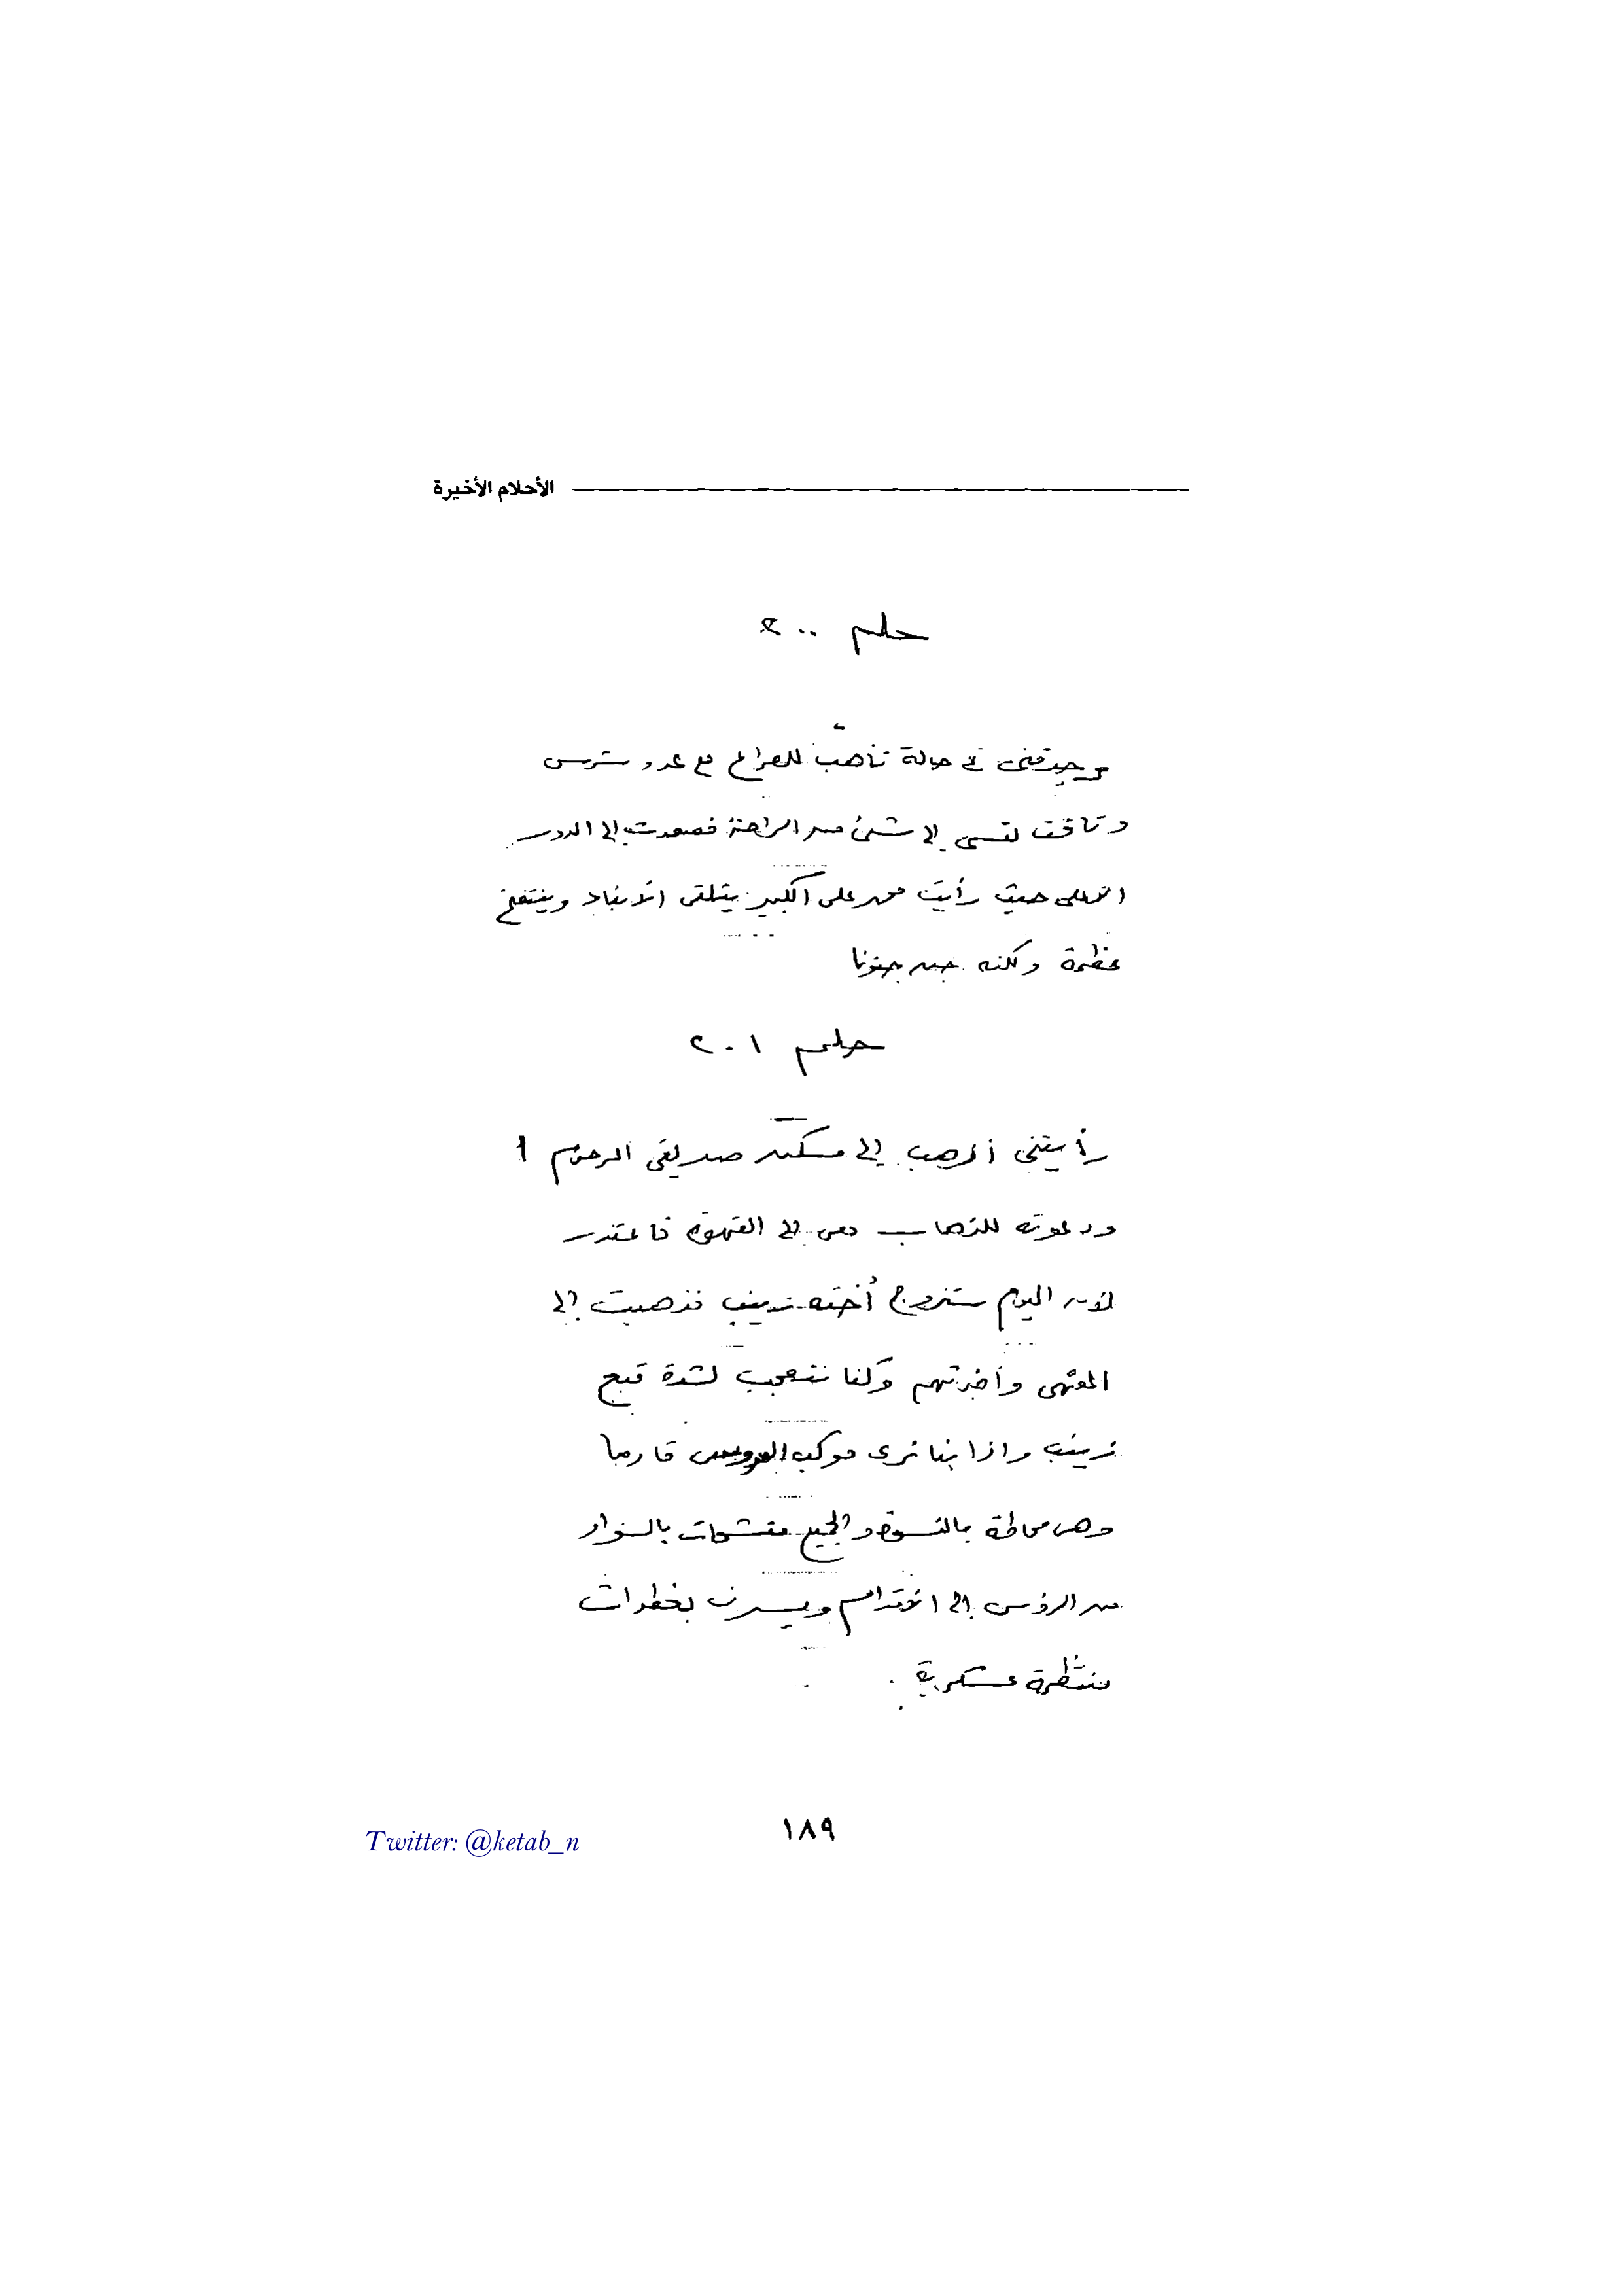 الأحلام الأخيرة
حلم ٢٠٠
وجدتنى فى حالة تأهب للصراع مع عدو شرس
وتاقت نفسى إلى شئ من الراحة فصعدت إلى الدور
الأعلى حيث رأيت محمد على الكبير يتلقى الأنباء وينتفخ
عظمة ولكنه جن جنونا
حلم ٢٠١
رأيتنى أذهب إلى مسكن صديقى المرحوم أ
ودعوته للذهاب معى إلى القهوة فاعتذر
لأن اليوم ستزوج أخته زينب فذهبت إلى
المقهى وأخبرتهم وكنا نتعجب لشدة قبح
زينب واذا بنا نرى موكب العروس قادما
وهى محاطة بالنسوة والجميع متشحات بالسواد
من الرؤس إلى الأقدام ويسرن بخطوات
منتظمة عسكرية .
١٨٩
Twitter: @ketab_n